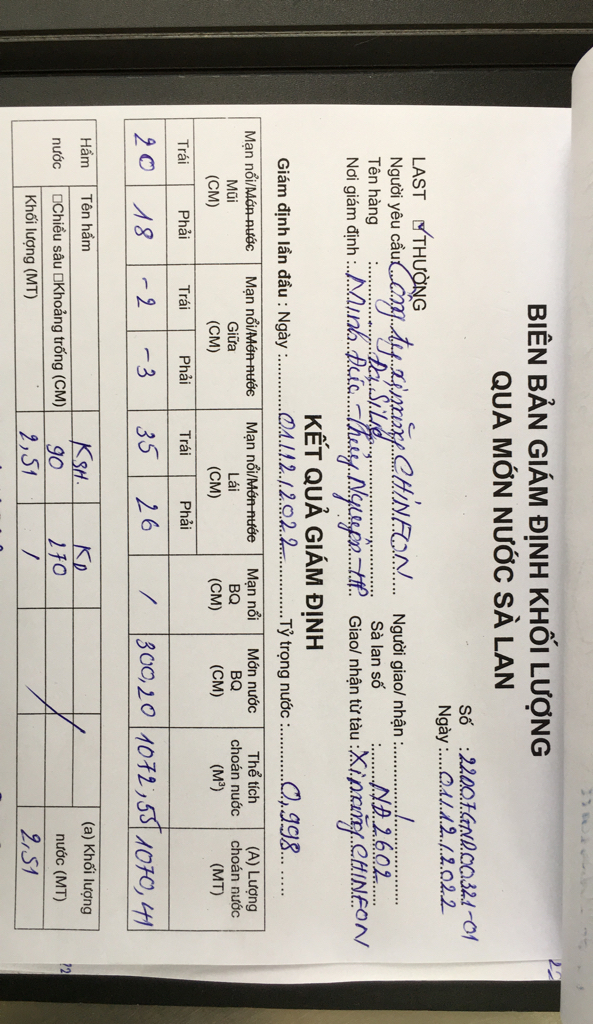 BIÊN BẢN GIÁM ĐỊNH KHỐI LƯỢNG
QUA MÓN NƯỚC SÀ LAN
Số : 22D07GND00321-01
Ngày : 01.12.2022
LAST ☑ THƯỜNG
Người yêu cầu: Công ty xi măng CHINFON
Người giao/ nhận : /
Tên hàng : Đá Silic
Sà lan số : NĐ2602
Nơi giám định : Minh Đức - Thủy Nguyên - HP
Giao/ nhận từ tàu : Xi măng CHINFON
KẾT QUẢ GIÁM ĐỊNH
Giám định lần đầu : Ngày : 01.12.2022 Tỷ trọng nước : 0,998
Mạn nổi/Món nước Mũi (CM) Mạn nổi/Món nước Giữa (CM) Mạn nổi/Món nước Lái (CM) Mạn nổi BQ (CM) Món nước BQ (CM) Thể tích choán nước (M³) (A) Lượng choán nước (MT)
Trái Phải Trái Phải Trái Phải
20 18 -2 -3 35 26 / 300,20 1072,55 1070,41
Hầm nước Tên hầm KSH. KD (a) Khối lượng nước (MT)
☐Chiều sâu ☐Khoảng trống (CM) 90 270
Khối lượng (MT) 2,51 / 2,51